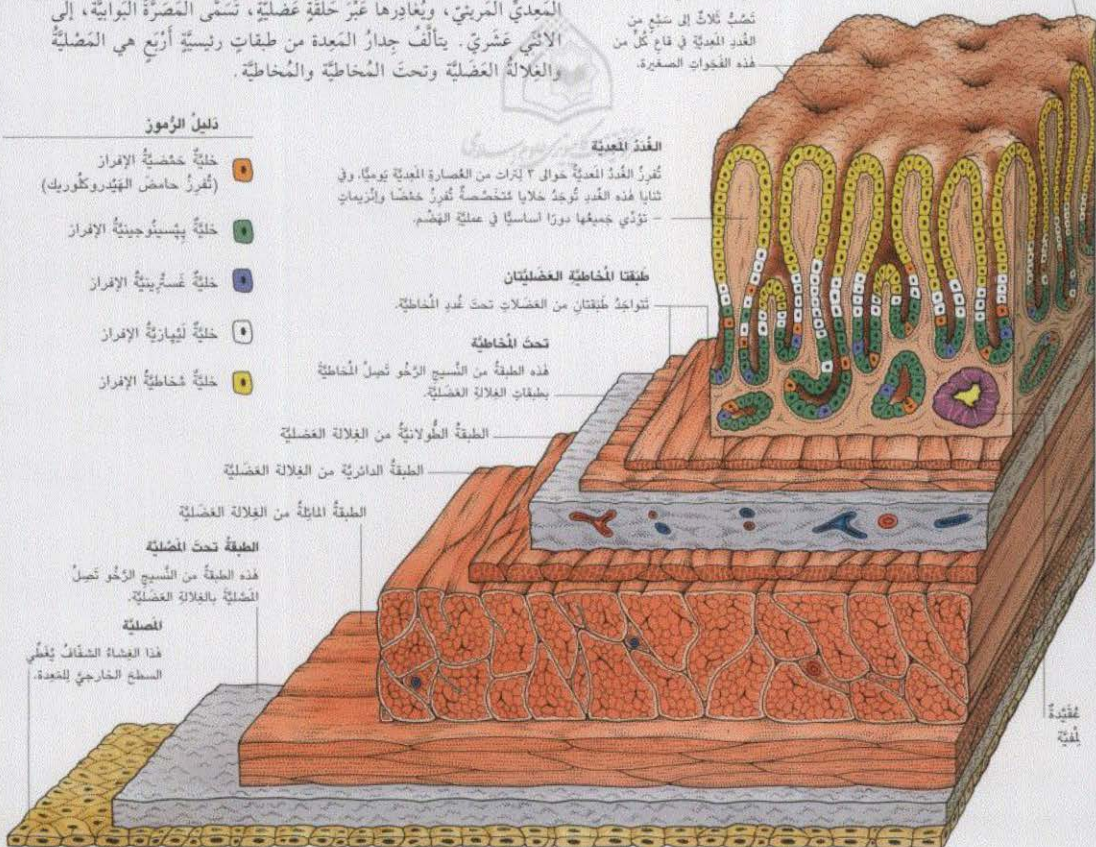 المَعِديَّ المَريئيّ، ويُغادِرها عَبْرَ حَلَقَةٍ عَضَليَّةٍ، تُسَمَّى المَصَرَّةَ البَوابيَّةَ، إلى
الاثْنَي عَشْريّ. يتألَّفُ جِدارُ المَعِدة من طبقاتٍ رئيسيَّةٍ أرْبَعٍ هي المَصْليَّةُ
والغِلالةُ العَضَليَّة وتحتَ المُخاطيَّة والمُخاطيَّة.
تَصُبُّ ثَلاثٌ إلى سَبْعٍ من
الغُددِ المَعِديَّة في قاعِ كُلٍّ من
هٰذه الفَجَواتِ الصغيرة.
دَليلُ الرُّموز
خَليَّةٌ حَمْضيَّةُ الإفراز
(تُفرِزُ حامضَ الهَيْدروكلوريك)
خَليَّةٌ پِپْسينُوجينيَّةُ الإفراز
خَليَّةٌ غَسْتْرِينيَّةُ الإفراز
خَليَّةٌ لَيْپازيَّةُ الإفراز
خَليَّةٌ مُخاطيَّةُ الإفراز
الغُددُ المَعِديَّة
تُفرِزُ الغُددُ المَعديَّةُ حَوالى ٣ لِتْرات من العُصارةِ المَعِديَّة يَوميًّا. وفي
ثنايا هٰذه الغُددِ تُوجَدُ خَلايا مُتَخَصِّصةٌ تُفرِزُ حَمْضًا وإنْزيماتٍ
– تؤدّي جَميعُها دورًا أساسيًّا في عمليَّةِ الهَضْم.
طَبَقتا المُخاطيَّةِ العَضَليَّتان
تَتواجَدُ طَبَقتانِ من العَضَلاتِ تحتَ غُددِ المُخاطيَّة.
تحتَ المُخاطيَّة
هٰذه الطبقةُ من النَّسيجِ الرَّخْو تَصِلُ المُخاطيَّةَ
بطبقاتِ الغِلالةِ العَضَليَّة.
الطبقةُ الطُّولانيَّةُ من الغِلالة العَضَليَّة
الطبقةُ الدائريَّة من الغِلالة العَضَليَّة
الطبقةُ المائلةُ من الغِلالة العَضَليَّة
الطبقةُ تحتَ المَصْليَّة
هٰذه الطبقةُ من النَّسيجِ الرَّخْو تَصِلُ
المَصْليَّةَ بالغِلالةِ العَضَليَّة.
المَصليَّة
هٰذا الغِشاءُ الشفّافُ يُغَطّي
السطحَ الخارجيَّ لِلمَعِدة.
عُقَيْدةٌ
لِمْفيَّة